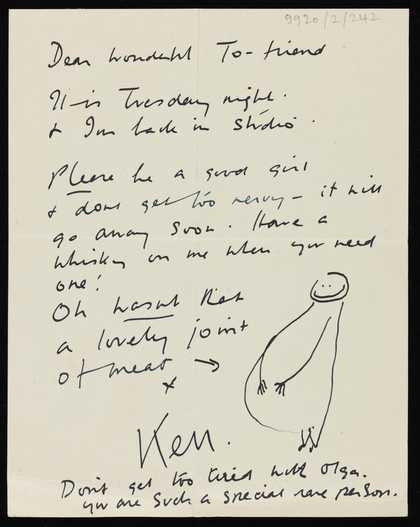 9920/2/242
Dear wonderful To-friend
It is Tuesday night.
& I'm back in studio.
Please be a good girl
& dont get too nervy – it will
go away soon. Have a
whisky on me when you need
one!
Oh wasnt that
a lovely joint
of meat →
x
Ken.
Don't get too tired with Olga.
you are such a special rare person.